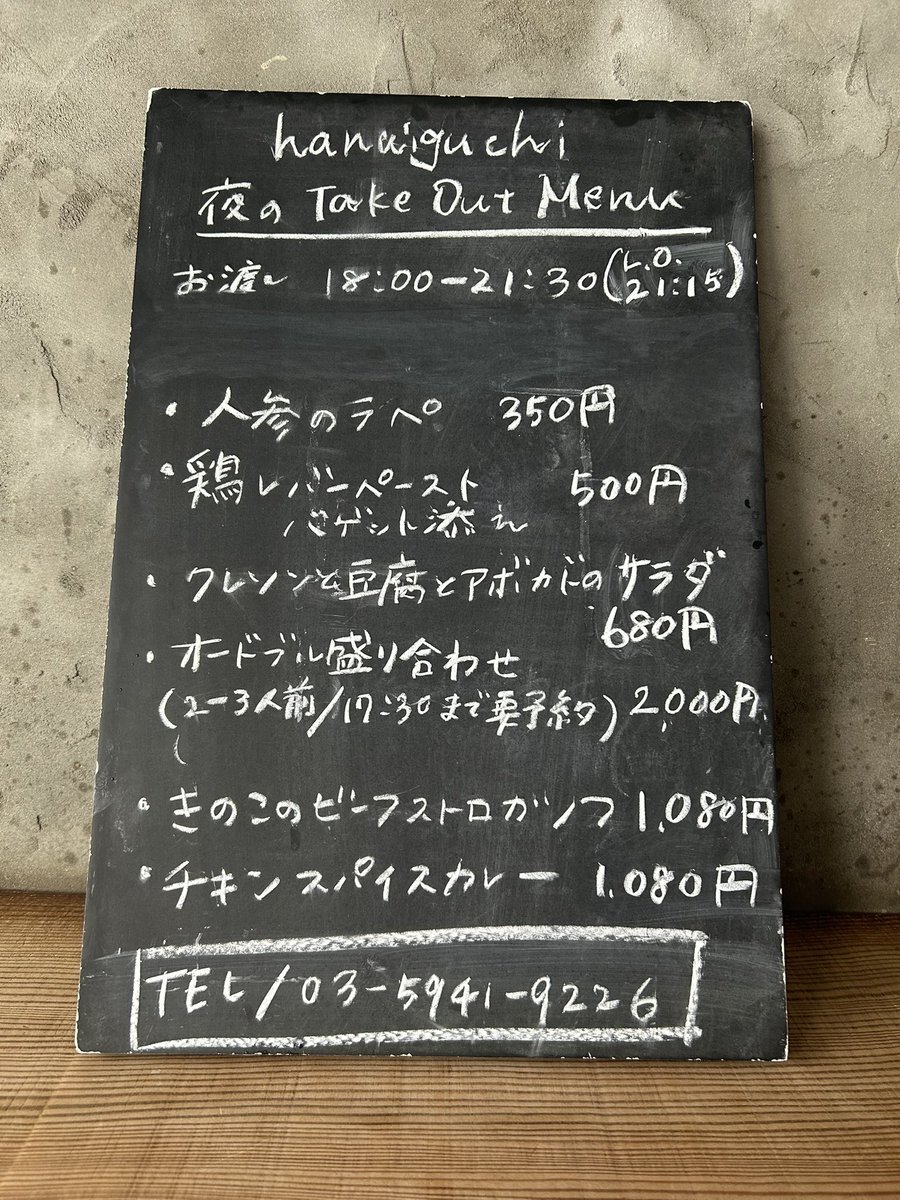 hanaiguchi
夜の Take Out Menu
お渡し 18:00-21:30(L.O. 21:15)
・人参のラペ 350円
・鶏レバーペースト 500円
バゲット添え
・クレソンと豆腐とアボカドのサラダ
680円
・オードブル盛り合わせ
(2-3人前/17:30まで要予約) 2,000円
・きのこのビーフストロガノフ 1,080円
・チキンスパイスカレー 1,080円
TEL/03-5941-9226